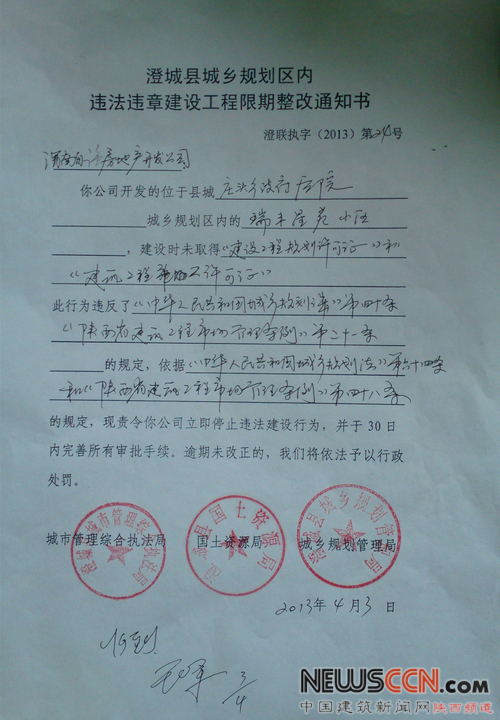 澄城县城乡规划区内
违法违章建设工程限期整改通知书
澄联执字（2013）第24号
房地产开发公司
你公司开发的位于县城 庄头乡政府后院
城乡规划区内的 瑞丰星苑小区
，建设时未取得《建设工程规划许可证》和
《建筑工程施工许可证》
此行为违反了《中华人民共和国城乡规划法》第四十条
《陕西省建筑工程市场管理条例》第二十一条
的规定，依据《中华人民共和国城乡规划法》第六十四条
和《陕西省建筑工程市场管理条例》第四十八条
的规定，现责令你公司立即停止违法建设行为，并于 30 日
内完善所有审批手续。逾期未改正的，我们将依法予以行政
处罚。
城市管理综合执法局 国土资源局 城乡规划管理局
澄城县城市管理综合执法局
澄城县国土资源局
澄城县城乡规划管理局
2013年4月3日
3/4
NEWSCCN.COM
中国建筑新闻网陕西频道